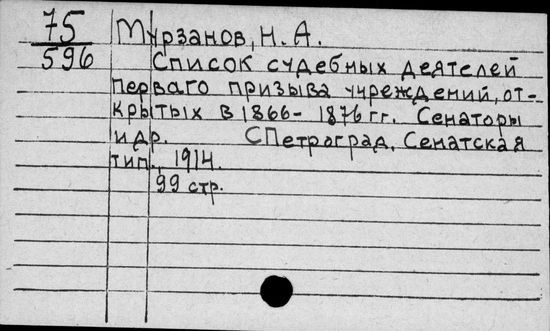 75 Мурзанов, Н. А.
596 Список судебных деятелей
перваго призыва учреждений, от-
крытых в 1866-1876 гг. Сенаторы
и др. СПетроград, Сенатская
тип., 1914.
99 стр.